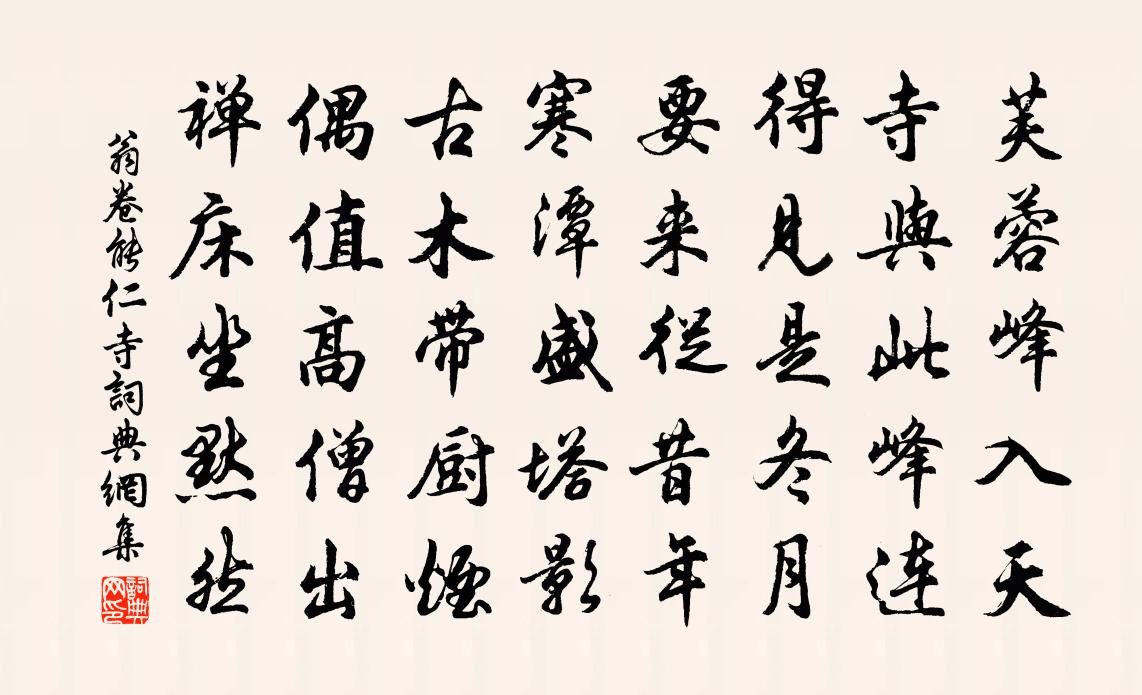 芙蓉峰入天
寺與此峰連
得見是冬月
要来從昔年
寒潭盛塔影
古木带厨煙
偶值高僧出
禅床坐默然
翁卷能仁寺詞典網集
詞典网印